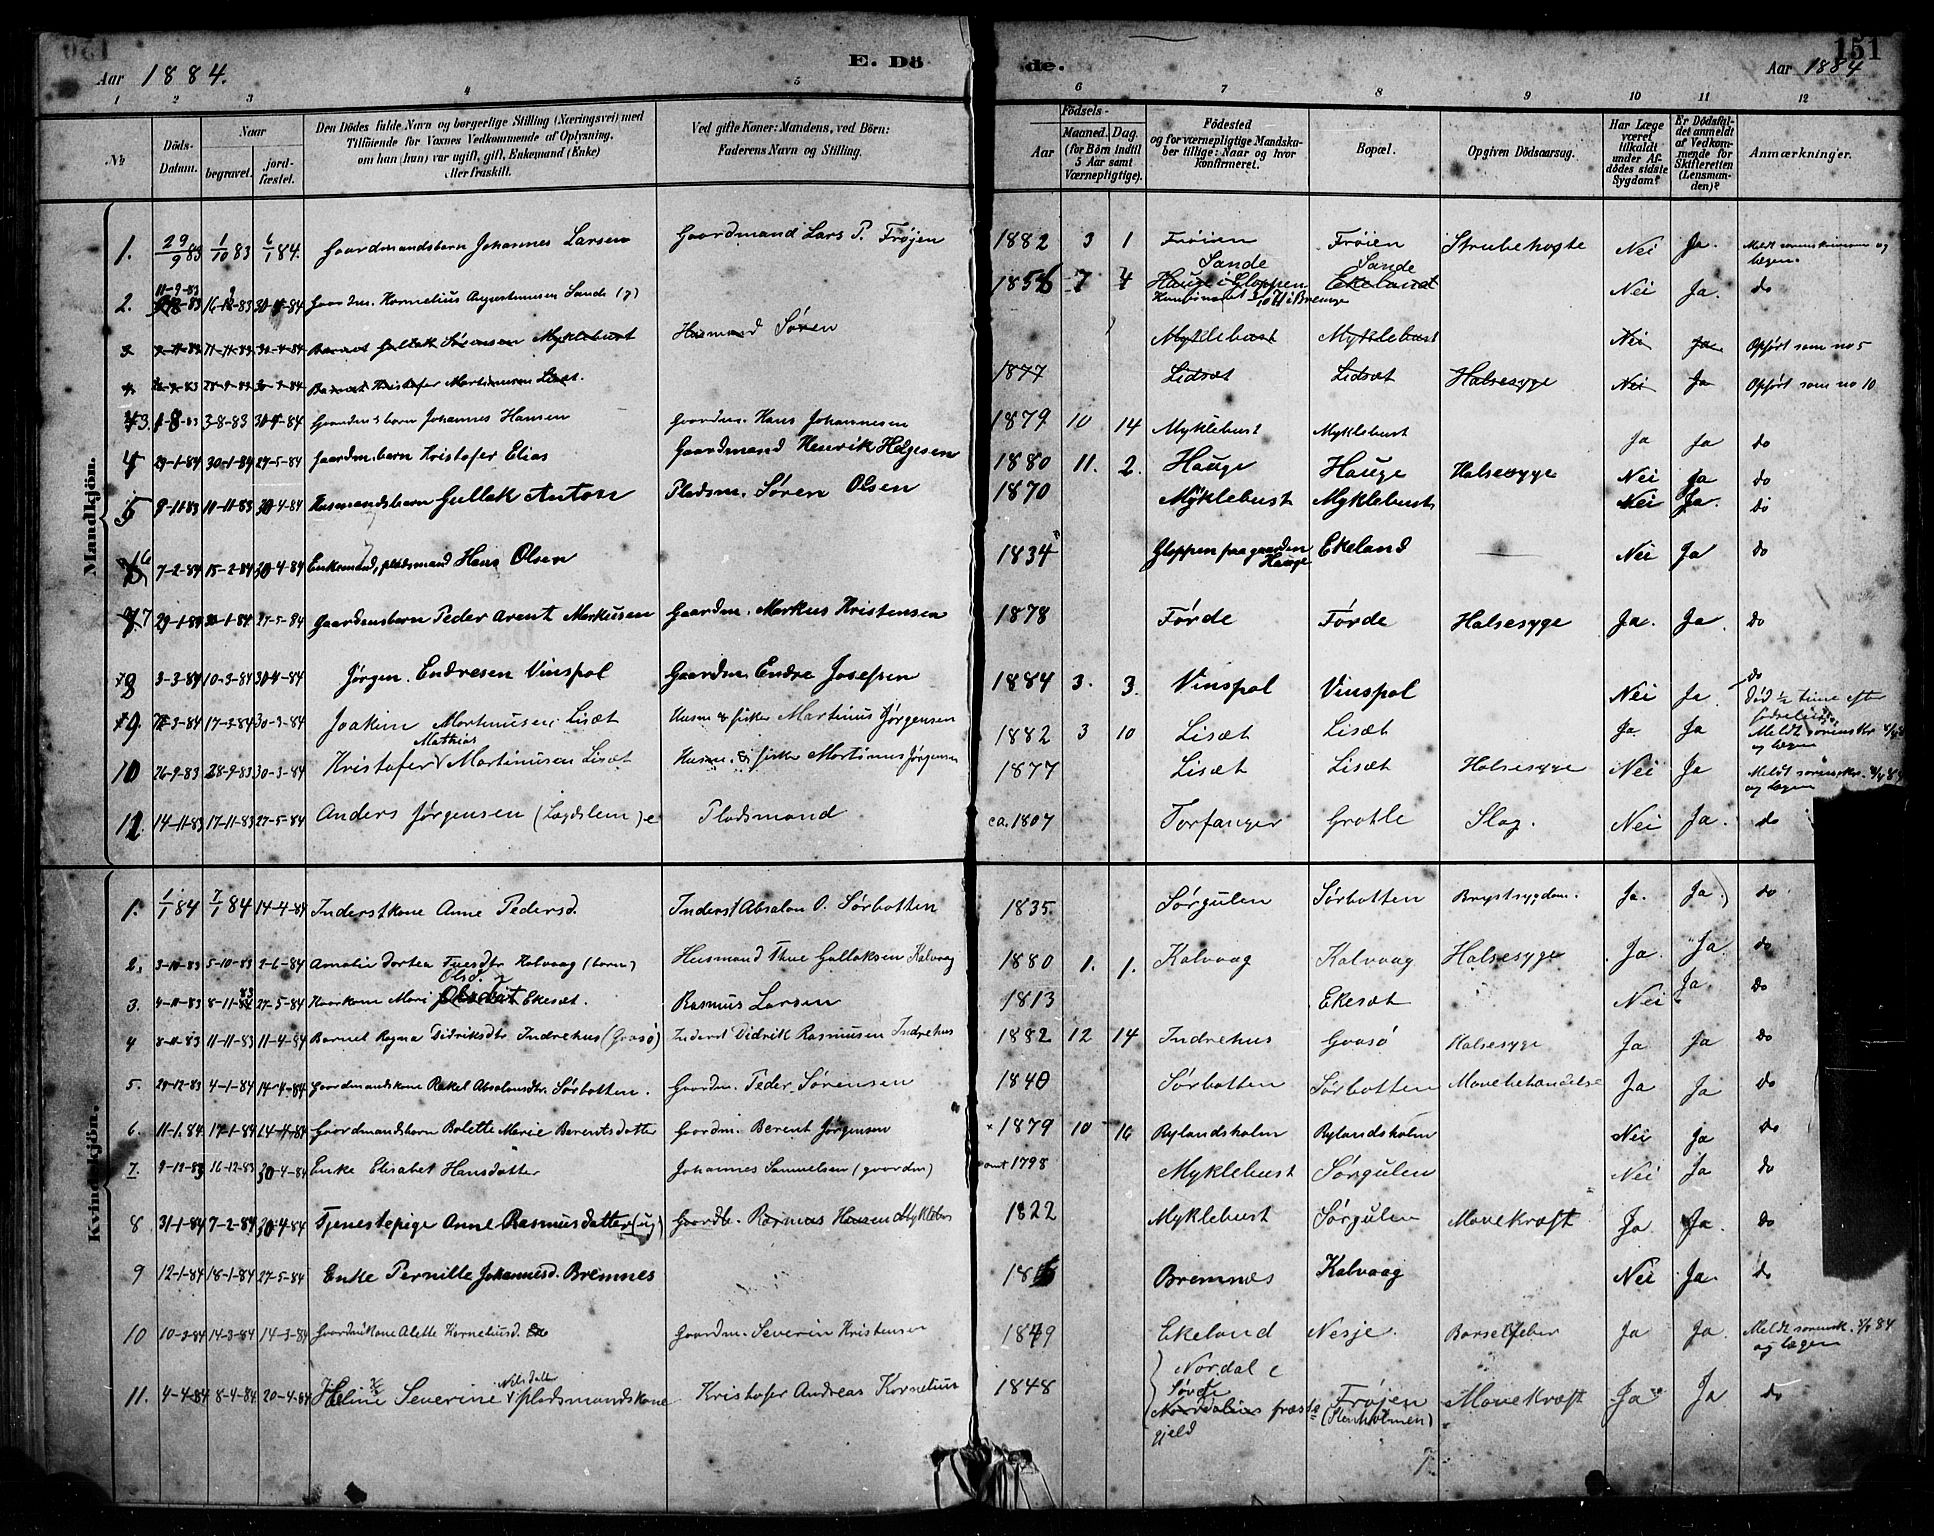 151
Aar 1884.
E. Dö
de.
Aar 1884
1 2 3 4 5 6 7 8 9 10 11 12
No
Döds-Datum.
Naar
begravet.
jord-fæstet.
Den Dödes fulde Navn og borgerlige Stilling (Næringsvei) med
Tilföiende for Voxnes Vedkommende af Oplysning.
om han (hun) var ugift, gift, Enkemand (Enke)
eller fraskilt.
Ved gifte Koner: Mandens, ved Börn:
Faderens Navn og Stilling.
Födsels-
Aar
Maaned. Dag.
(for Børn indtil
5 Aar samt
Værnepligtige).
Födested
og for værnepligtige Mandska-
ber tillige: Naar og hvor
konfirmeret.
Bopæl.
Opgiven Dödsaarsag.
Har Læge
været
tilkaldt
under Af-
dödes sidste
Sygdom?
Er Dödsfal-
det anmeldt
af Vedkom-
mende for
Skifteretten
(Lensman-
den)?
Anmærkninger.
Mandkjön.
1. 29/9 83 1/10 83 6/1 84. Gaardmandsbarn Johannes Larsen Gaardmand Lars P. Frøjen 1882 3 1 Frøien Frøien Strubehoste Nei Ja. Meldt sorenskriveren og lægen
2. 11-9-83 Gaardm. Kornelius Augustinussen Sande (g) 1856 7 4 Sande Hauge i Gloppen Sande Ekeland Nei Ja. do
3 9-11-83 11-11-83 30-4-84 Barnet Gullak Sörensen Myklebust Husmand Sören Myklebust Myklebust Nei Ja Opført som no 5
4. 26-9-83 28-9-83 Barnet Kristofer Martinusen Lisæt. 1877 Lidsæt Lidsæt Halsesyge Nei Ja Opført som no 10
3. 1-8-83 3-8-83 30-4-84 Gaardm's barn Johannes Hansen Gaardm. Hans Johannesen 1879 10 14 Myklebust Myklebust Ja Ja do
4 29-1-84 30-1-84 27-5-84 Gaardm.barn Kristofer Elias Gaardmand Henrik Helgesen 1880 11. 2. Hauge Hauge Halsesyge Nei Ja do
5 9-11-83 11-11-83 30-4-84 Husmandsbarn Gullak Anton Pladsm. Sören Olsen 1870 Myklebust Myklebust Nei Ja. do
6 7-2-84 15-2-84 30-4-84 Enkemand, pladsmand Hans Olsen 1834 Gloppen paa gaarden Hauge Ekeland Nei Ja do
7 29-1-84 27-5-84 Gaardmsbarn Peder Arent Markusen Gaardm. Markus Kristensen 1878 Førde Førde Halsesyge Ja. Ja. do
8 3-3-84 10-3-84 30-4-84 Jørgen. Endresen Vinspol Gaardm. Endre Josefsen 1884 3. 3. Vinspol Vinspol Nei Ja do Död ½ time eft
9. 17-3-84 30-3-84 Joakim Martinusen Lisæt Husm & fisker Martinus Jörgensen 1882 3 10 Lisæt Lisæt Ja Ja Meldt sorenskr og lægen
10 26-9-83 28-9-83 30-3-84 Kristofer Mathias Martinusen Lisæt Husm. & fisker Martinus Jörgensen 1877 Lisæt Lisæt Halsesyge Nei Ja Meldt sorenskr. og lægen
11. 14-11-83 17-11-83 27-5-84 Anders Jørgensen (Lægdslem) e Pladsmand ca. 1807 Torfanger Grotle Slag. Nei Ja. do
Kvindekjön.
1. 1/1 84 7/1 84 14-4-84 Inderstkone Anne Pedersd. Inderst Absalon O. Sørbotten 1835. Sørgulen Sørbotten Brystsygdom. Ja. Ja. do
2. 3-10-83 5-10-83 2-6-84 Amalie Dortea Tuesdtr Kalvaag (barn) Husmand Thue Gullaksen Kalvaag 1880 1. 1. Kalvaag Kalvaag Halsesyge Ja. Ja. do
3. 4-11-83 8-11-83 27-5-84 Kaarkone Mari Olsd. Ekesæt. Rasmus Larsen 1813 Ekesæt Nei Ja. do
4 8-11-83 11-11-83 11-4-84 Barnet Ragna Didriksdtr Indrehus (Graasø) Inderst Didrik Rasmusen Indrehus 1882 12 14 Indrehus Graasø Halsesyge Ja Ja do
5. 29-12-83 4-1-84 14-4-84 Gaardmandskone Rakel Absalonsdtr. Sørbotten. Gaardm. Peder Sørensen 1840 Sørbotten Sørbotten Mavebetændelse Ja Ja do
6. 11-1-84 17-1-84 14-4-84 Gaardmandsbarn Bolette Marie Berentsdatter Gaardm. Berent Jørgensen 1879 10 16 Rylandsholm Rylandsholm Nei Ja do
7. 9-12-83 16-12-83 30-4-84 Enke Elisabet Hansdatter Johannes Samuelsen (gaardm) omt 1798 Myklebust Sørgulen Nei Ja do
8 31-1-84 7-2-84 30-4-84 Tjenestepige Anne Rasmusdatter (ug) Gaardb. Rasmus Hansen Mykleb 1822 Myklebust Sørgulen Mavekræft Ja Ja. do
9 12-1-84 18-1-84 27-5-84 Enke Pernille Johannesd. Bremnes Bremnæs Kalvaag Nei Ja. do
10 10-3-84 14-3-84 14-3-84 Gaardm's kone Alette Korneliusd. Gaardm. Severin Kristensen 1849 Ekeland Nesje. Barselfeber Ja Ja. Meldt sorensk. og lægen
11. 4-4-84 8-4-84 20-4-84 Severine Nilsdatter pladsmandskone Kristofer Andreas Kornelius 1848 Nordal Frøjen (Stenholmen) Mavekræft Ja Ja do
gjeld